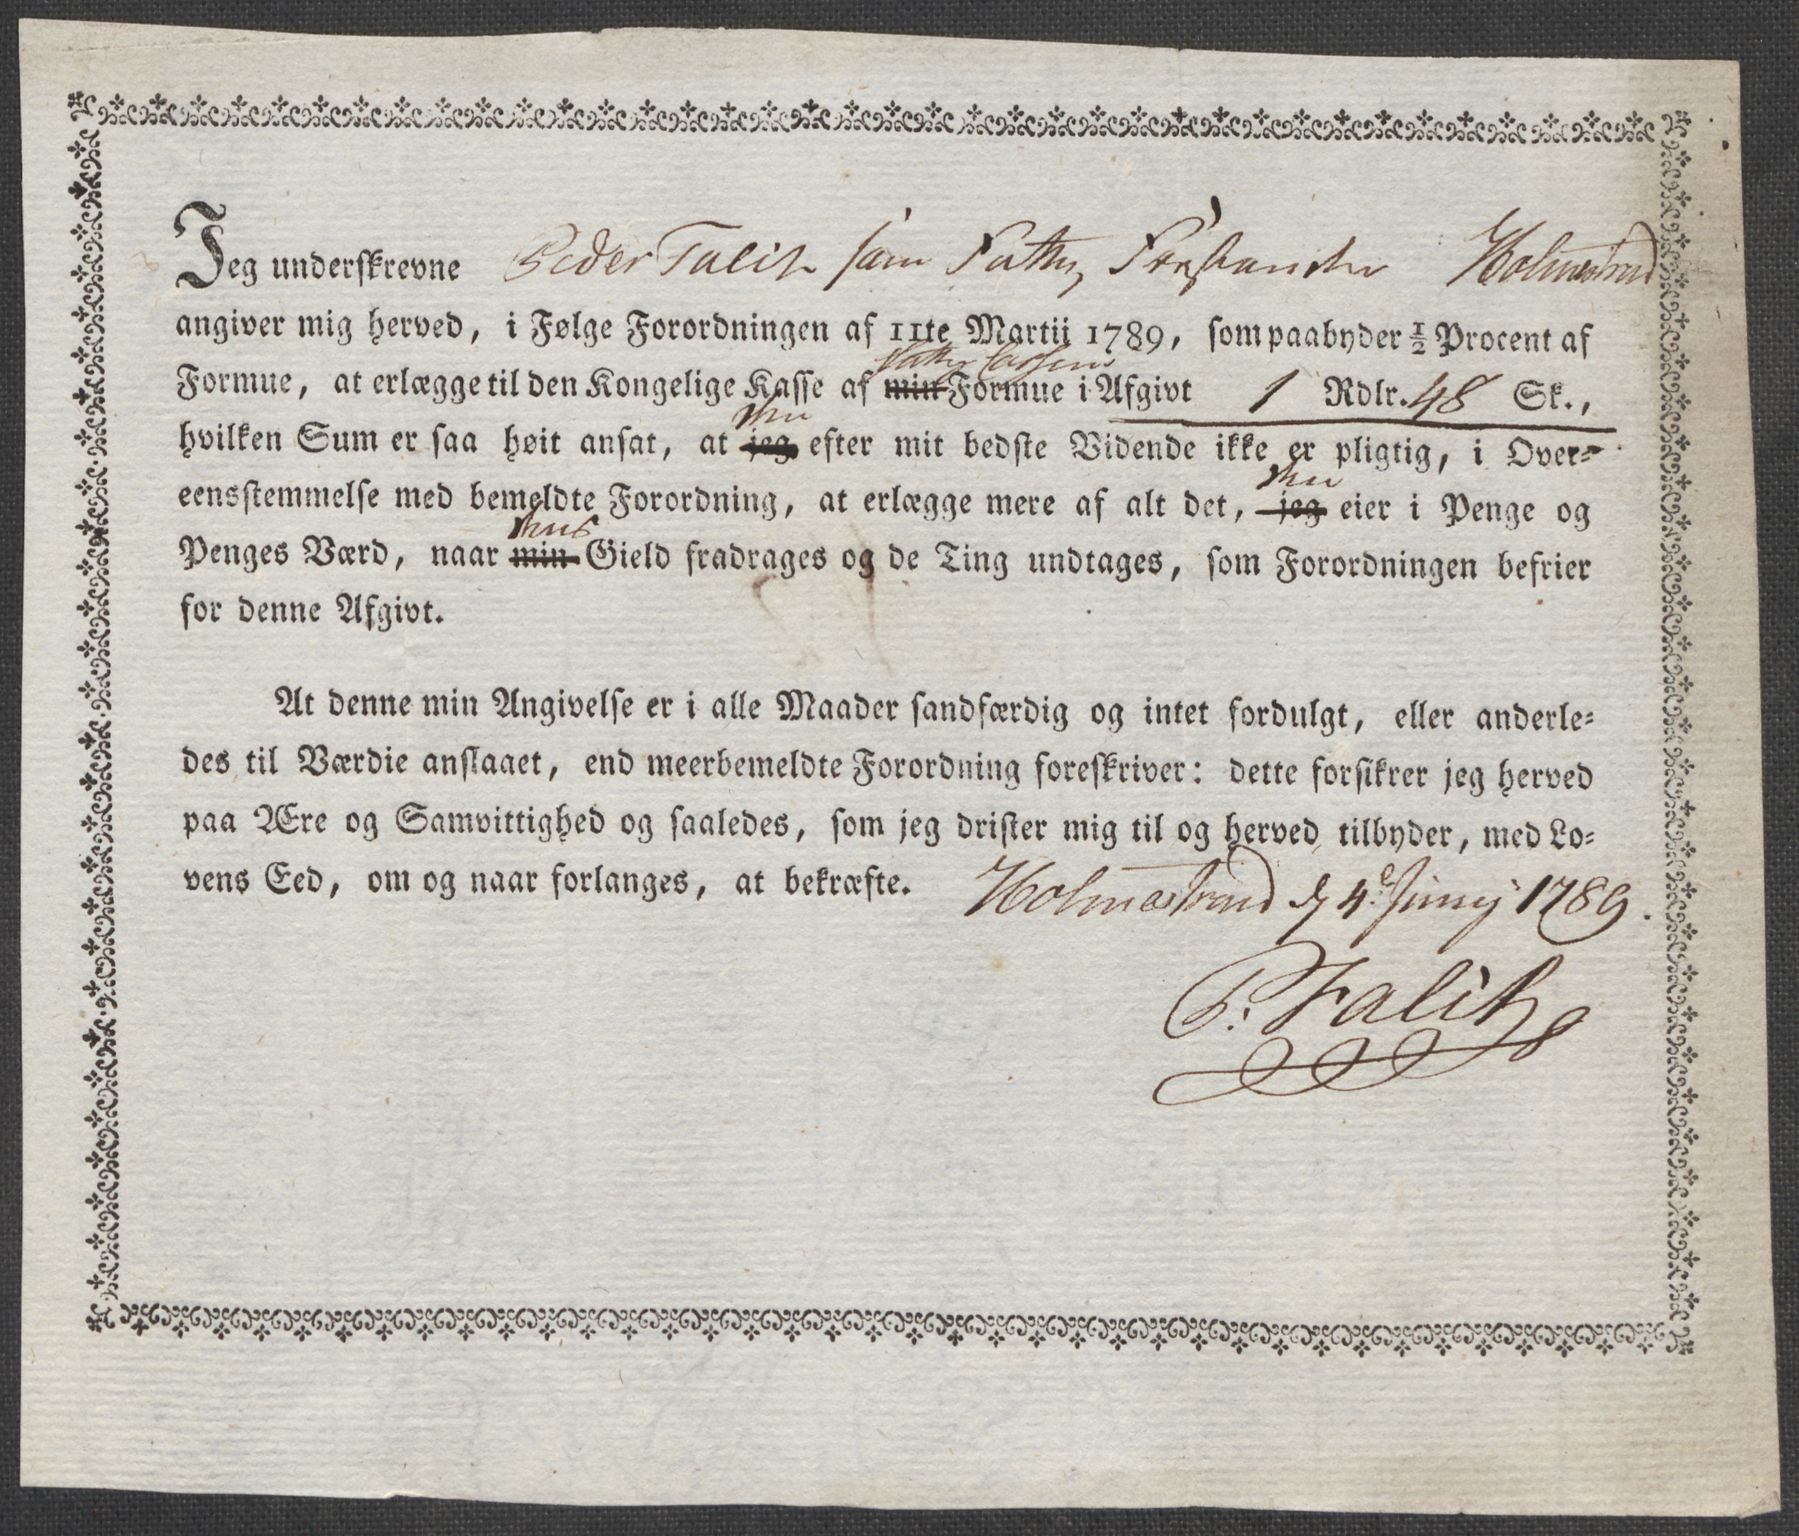 Jeg underskrevne Peder Falch som Fattig Forstander Holmestrand
angiver mig herved, i Følge Forordningen af 11te Martii 1789, som paabyder ½ Procent af
Formue, at erlægge til den Kongelige Kasse af min Formue i Afgivt 1 Rdlr. 48 Sk.,
hvilken Sum er saa høit ansat, at jeg efter mit bedste Vidende ikke er pligtig, i Over-
eensstemmelse med bemeldte Forordning, at erlægge mere af alt det, jeg eier i Penge og
Penges Værd, naar min Gield fradrages og de Ting undtages, som Forordningen befrier
for denne Afgivt.
At denne min Angivelse er i alle Maader sandfærdig og intet fordulgt, eller anderle-
des til Værdie anslaaet, end meerbemeldte Forordning foreskriver: dette forsikrer jeg herved
paa Ære og Samvittighed og saaledes, som jeg drister mig til og herved tilbyder, med Lo-
vens Eed, om og naar forlanges, at bekræfte. Holmestrand d 4de Junij 1789.
P: Falch